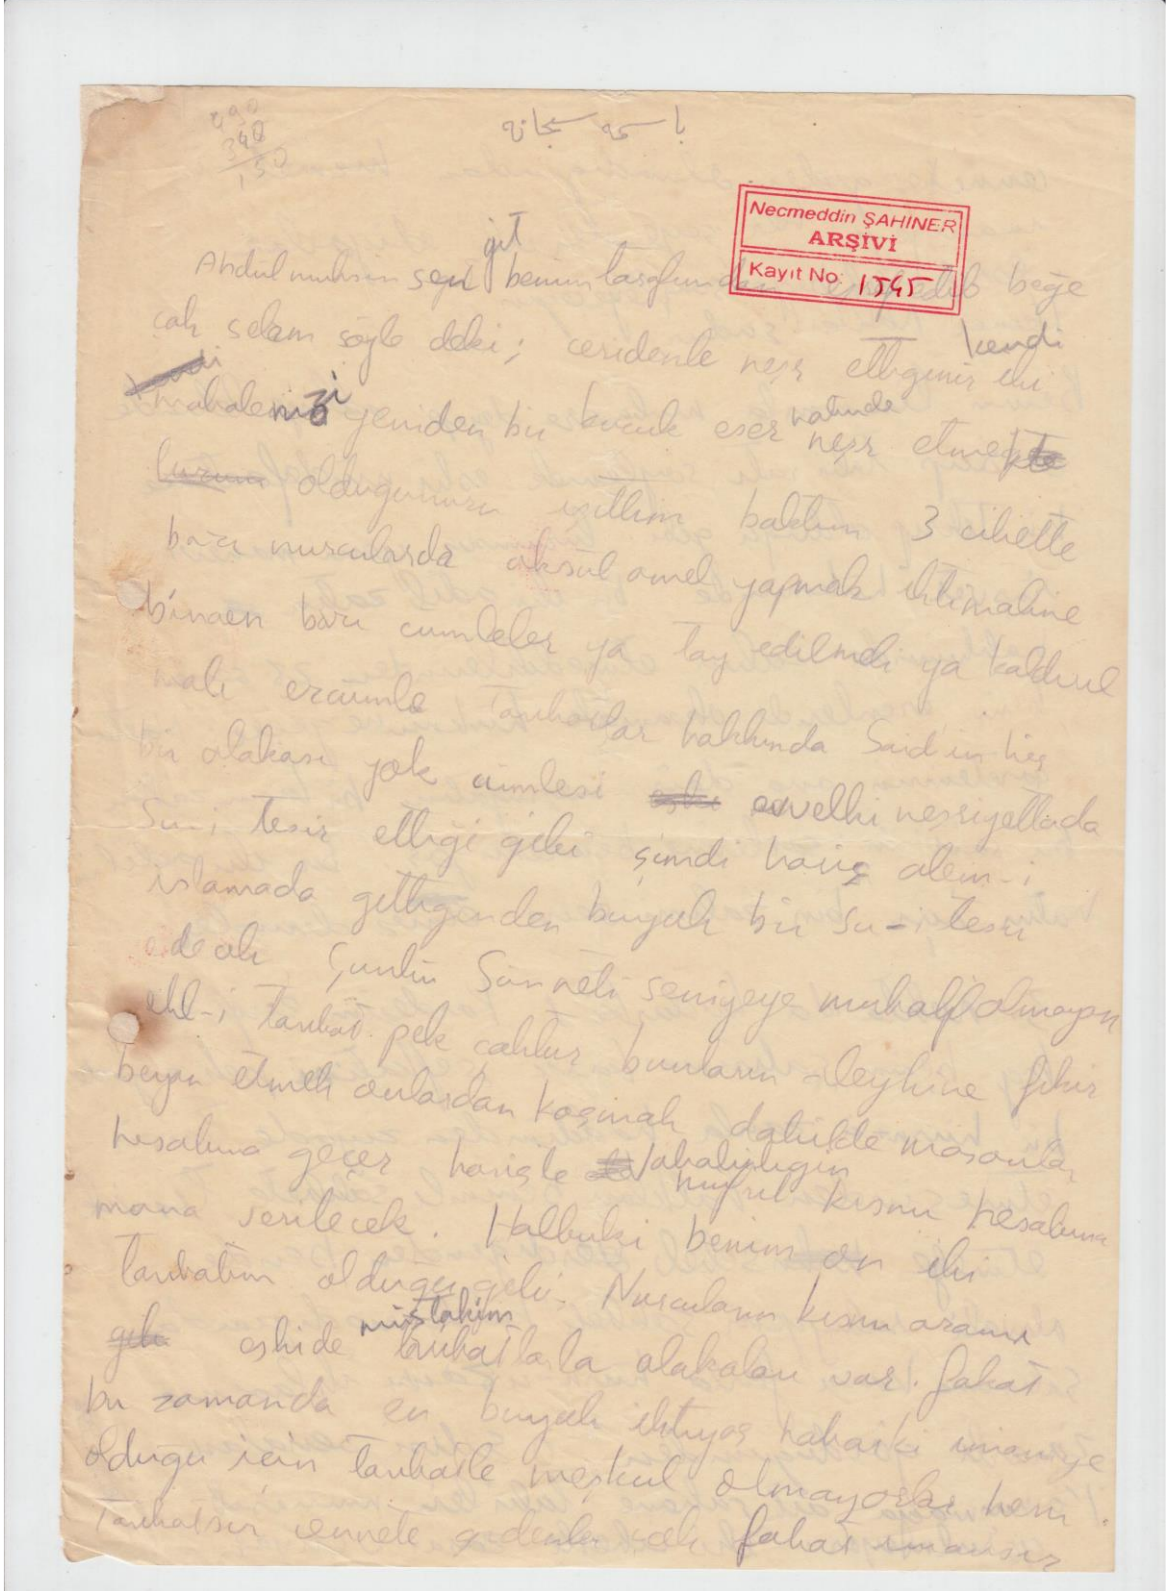 باسمه سبحانه
890
340
150
Necmeddin ŞAHİNER
ARŞİVİ
Kayıt No: 1545
git
Abdulmuhsin sen benim tarafımdan beğe
çok selam söyle deki; ceridenle neşr ettiginiz iki
kendi
mahalenizi yeniden bir kucuk eser neşr etmek
halinde
oldugunuzu isittim baktım 3 cihette
bazı nurcularda aksul amel yapmak ihtimaline
binaen bazı cumleler ya tay edilmeli ya kaldırıl
malı ezcumle tarikatlar hakkında Said in hiç
bir alakası yok cümlesi evvelki neşriyattada
Su-i tesir ettiği gibi şimdi hariç alem-i
islamada gittiginden buyuk bir su-i tesir
edecek Çunku Sünneti seniyeye muhalif olmayan
ehl-i tarikat pek çoktur bunların aleyhine fikir
beyan etmek onlardan kaçınmak dahilde masonlar
hesabına geçer hariçte Vahabiligin
mufrit kısmı hesabına
mana verilecek. Halbuki benim on iki
tarikatım olduğu gibi. Nurcuların kısmı azamı
müstakim
eskide tarikatlarla alakaları var. fakat
bu zamanda en buyuk ihtiyaç hakaiki imaniye
olduğu için tarikatle meşkul olmayorlar hem
Tarikatsız cennete gidenler çok fakat imansız